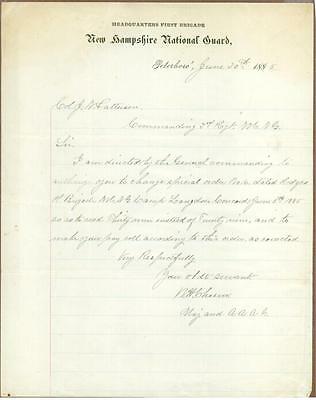 HEADQUARTERS FIRST BRIGADE
New Hampshire National Guard,
Peterboro', June 20th 1885
Col J. N. Patterson.
Commanding 3d Regt N.H.N.G.
Sir
I am directed by the General commanding to
authorize you to change special order No. dated Hdqrs
1st Brigade N.H.N.G. Camp Langdon Concord June 8th 1885
so as to read Thirty nine instead of Twenty nine, and to
make your pay roll according to this order as corrected
Very Respectfully
Your obdt servant
Maj and A.A.A.G.